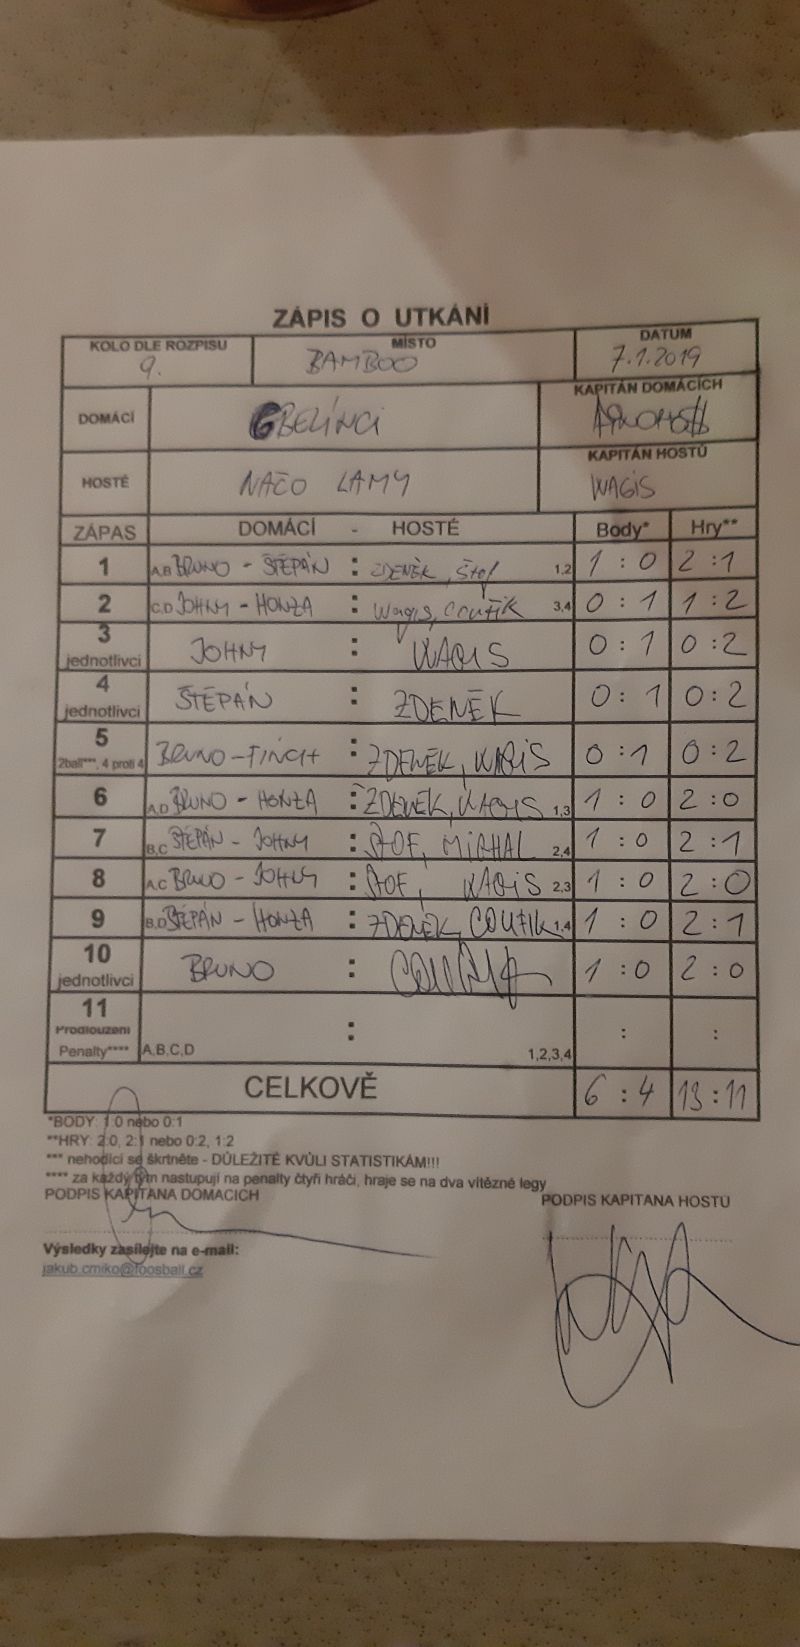 ZÁPIS O UTKÁNÍ
KOLO DLE ROZPISU MÍSTO DATUM
9. BAMBOO 7.1.2019
DOMÁCÍ GBELÍNCI KAPITÁN DOMÁCÍCH
HOSTÉ NAČO LAMY KAPITÁN HOSTŮ
WAGIS
ZÁPAS DOMÁCÍ - HOSTÉ Body* Hry**
1 A,B BRUNO - ŠTĚPÁN : ZDENĚK, Štof 1,2 1 : 0 2 : 1
2 C,D JOHNY - HONZA : Wagis, Coufik 3,4 0 : 1 1 : 2
3 jednotlivci JOHNY : WAGIS 0 : 1 0 : 2
4 jednotlivci ŠTĚPÁN : ZDENĚK 0 : 1 0 : 2
5 2ball***, 4 proti 4 BRUNO - FINCH : ZDENĚK, WAGIS 0 : 1 0 : 2
6 A,D BRUNO - HONZA : ZDENĚK, WAGIS 1,3 1 : 0 2 : 0
7 B,C ŠTĚPÁN - JOHNY : ŠTOF, MICHAL 2,4 1 : 0 2 : 1
8 A,C BRUNO - JOHNY : ŠTOF, WAGIS 2,3 1 : 0 2 : 0
9 B,D ŠTĚPÁN - HONZA : ZDENĚK, COUFIK 1,4 1 : 0 2 : 1
10 jednotlivci BRUNO : 1 : 0 2 : 0
11 Prodloužení : : :
Penalty**** A,B,C,D 1,2,3,4
CELKOVĚ 6 : 4 13 : 11
*BODY: 1:0 nebo 0:1
**HRY: 2:0, 2:1 nebo 0:2, 1:2
*** nehodící se škrtněte - DŮLEŽITÉ KVŮLI STATISTIKÁM!!!
**** za každý tým nastupují na penalty čtyři hráči, hraje se na dva vítězné legy
PODPIS KAPITÁNA DOMÁCÍCH PODPIS KAPITÁNA HOSTŮ
Výsledky zasílejte na e-mail:
jakub.crniko@foosball.cz